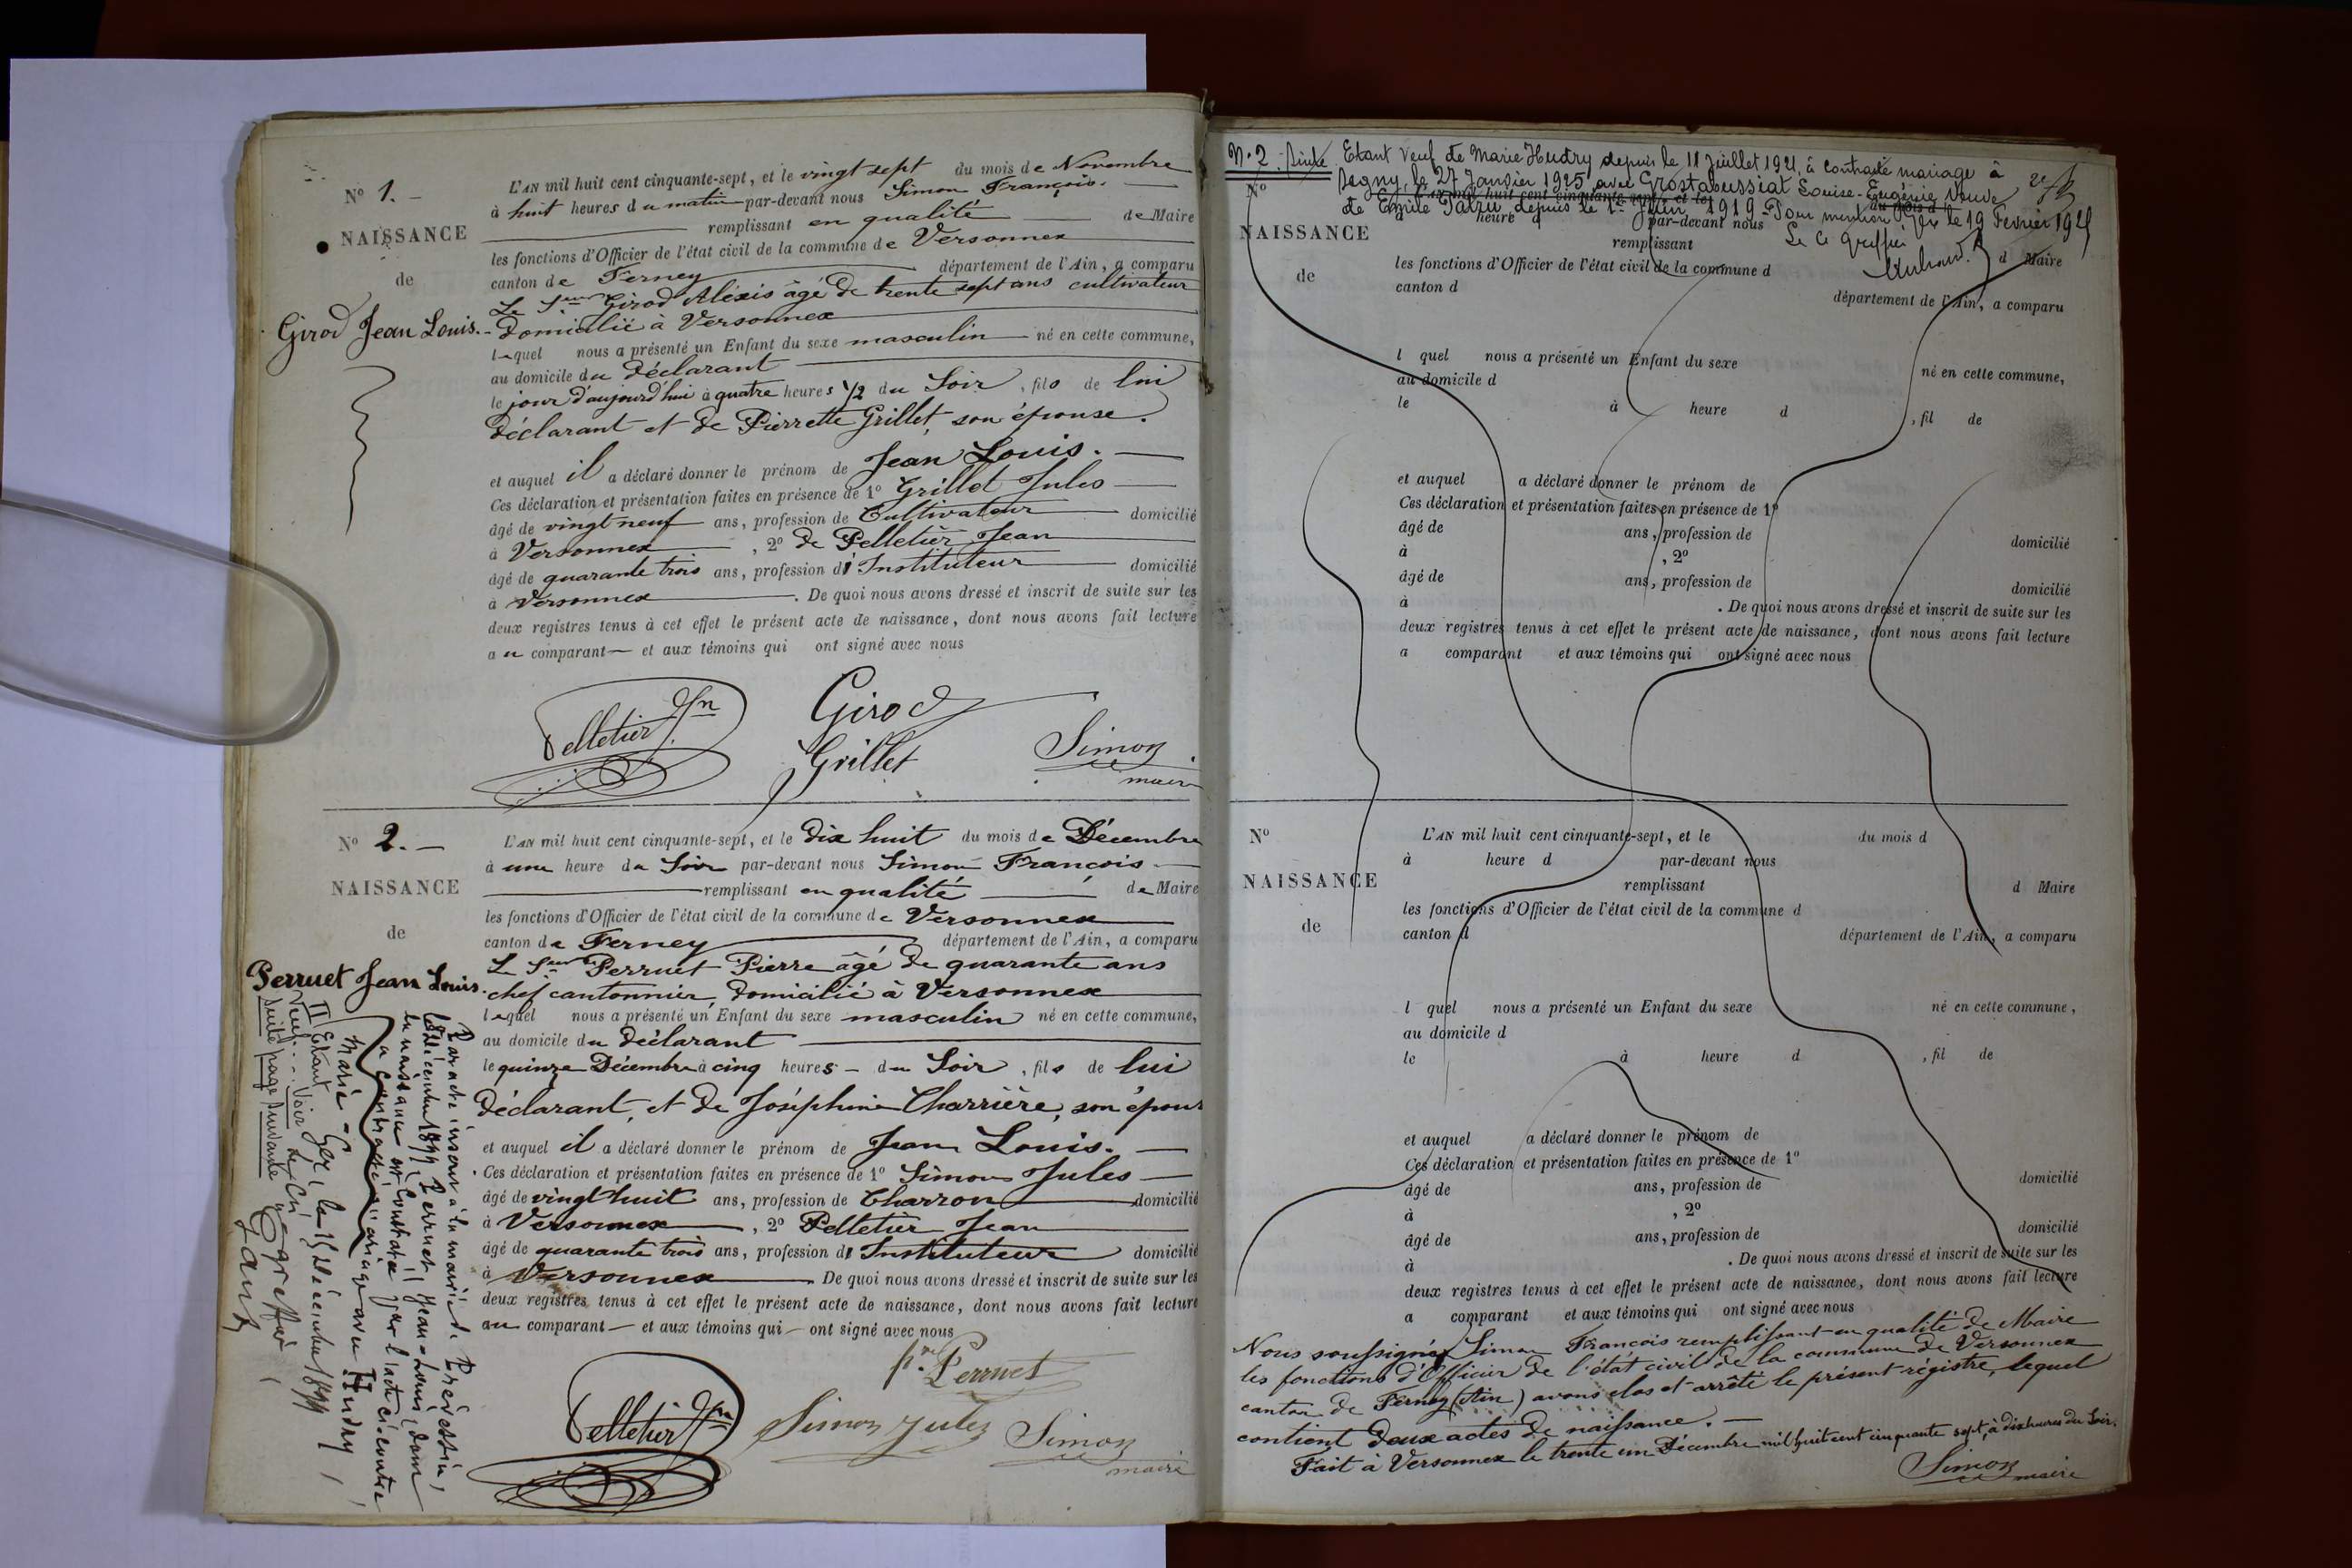 Nº 1. —
NAISSANCE
de
Girod Jean Louis.
L'AN mil huit cent cinquante-sept, et le vingt sept du mois de Novembre
à huit heures du matin par-devant nous Simon François.
remplissant en qualité de Maire
les fonctions d'Officier de l'état civil de la commune de Versonnex
canton de Ferney département de l'Ain, a comparu
Le Sieur Girod Aléxis âgé de trente sept ans cultivateur
domicilié à Versonnex
lequel nous a présenté un Enfant du sexe masculin né en cette commune,
au domicile du déclarant
le jour d'aujourd'hui à quatre heures 1/2 du Soir, fils de lui
déclarant et de Pierrette Grillet, son épouse.
et auquel il a déclaré donner le prénom de Jean Louis. —
Ces déclaration et présentation faites en présence de 1º Grillet Jules
âgé de vingt neuf ans, profession de Cultivateur domicilié
à Versonnex, 2º de Pelletier Jean
âgé de quarante trois ans, profession d'Instituteur domicilié
à Versonnex. De quoi nous avons dressé et inscrit de suite sur les
deux registres tenus à cet effet le présent acte de naissance, dont nous avons fait lecture
au comparant — et aux témoins qui ont signé avec nous
Pelletier Jn Girod
Grillet Simon
maire
Nº 2. —
NAISSANCE
de
Perruet Jean Louis.
L'AN mil huit cent cinquante-sept, et le dix huit du mois de Décembre
à une heure du Soir par-devant nous Simon François
remplissant en qualité de Maire
les fonctions d'Officier de l'état civil de la commune de Versonnex
canton de Ferney département de l'Ain, a comparu
Le Sieur Perruet Pierre âgé de quarante ans
chef cantonnier, domicilié à Versonnex
lequel nous a présenté un Enfant du sexe masculin né en cette commune,
au domicile du déclarant
le quinze Décembre à cinq heures — du Soir, fils de lui
déclarant, et de Joséphine Charrière, son épouse
et auquel il a déclaré donner le prénom de Jean Louis. —
Ces déclaration et présentation faites en présence de 1º Simon Jules —
âgé de vingt huit ans, profession de Charron domicilié
à Versonnex, 2º Pelletier Jean
âgé de quarante trois ans, profession d'Instituteur domicilié
à Versonnex. De quoi nous avons dressé et inscrit de suite sur les
deux registres tenus à cet effet le présent acte de naissance, dont nous avons fait lecture
au comparant — et aux témoins qui — ont signé avec nous
Perruet
Pelletier Jn Simon Jules Simon
maire
Par acte inscrit à la mairie de Prévessin,
le Décembre 1899 Perruet, Jean-Louis, dont
la naissance est constatée par l'acte ci-contre
a contracté mariage avec Hudry,
Marie - Gex, le 15 Décembre 1899
II Etant Le Cis greffier
Veuf... Voir
Suite page suivante
N. 2. Suite Etant veuf de Marie Hudry depuis le 11 Juillet 1921, a contracté mariage à
Segny, le 27 Janvier 1925 avec Grostabussiat Louise-Eugénie Veuve
de Emile depuis le 1er Juin 1919 - Pour mention Gex le 19 Février 1925
Le Cis Greffier
Nº
NAISSANCE
de
L'AN mil huit cent cinquante-sept, et le du mois d
à heure d par-devant nous
remplissant d Maire
les fonctions d'Officier de l'état civil de la commune d
canton d département de l'Ain, a comparu
l quel nous a présenté un Enfant du sexe né en cette commune,
au domicile d
le à heure d , fil de
et auquel a déclaré donner le prénom de
Ces déclaration et présentation faites en présence de 1º
âgé de ans, profession de domicilié
à , 2º
âgé de ans, profession de domicilié
à . De quoi nous avons dressé et inscrit de suite sur les
deux registres tenus à cet effet le présent acte de naissance, dont nous avons fait lecture
a comparant et aux témoins qui ont signé avec nous
Nº
NAISSANCE
de
L'AN mil huit cent cinquante-sept, et le du mois d
à heure d par-devant nous
remplissant d Maire
les fonctions d'Officier de l'état civil de la commune d
canton d département de l'Ain, a comparu
l quel nous a présenté un Enfant du sexe né en cette commune,
au domicile d
le à heure d , fil de
et auquel a déclaré donner le prénom de
Ces déclaration et présentation faites en présence de 1º
âgé de ans, profession de domicilié
à , 2º
âgé de ans, profession de domicilié
à . De quoi nous avons dressé et inscrit de suite sur les
deux registres tenus à cet effet le présent acte de naissance, dont nous avons fait lecture
a comparant et aux témoins qui ont signé avec nous
Nous soussigné Simon François remplissant en qualité de Maire
les fonctions d'Officier de l'état civil de la commune de Versonnex
canton de Ferney (Ain) avons clos et arrêté le présent régistre, lequel
contient deux actes de naissance. —
Fait à Versonnex le trente un Décembre mil huit cent cinquante sept, à dix heures du Soir.
Simon
maire